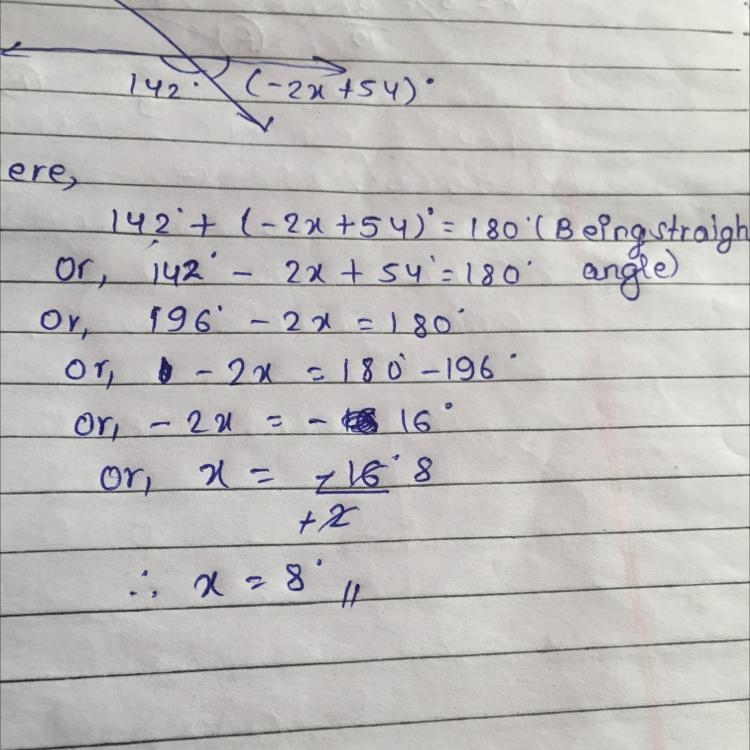 142° (-2x+54)°
ere,
142° + (-2x+54)° = 180° (Being straigh
Or, 142° - 2x + 54° = 180° angle)
Or, 196° - 2x = 180°
or, - 2x = 180° - 196°
or, - 2x = - 16°
or, x = -16° 8
+2
∴ x = 8° //